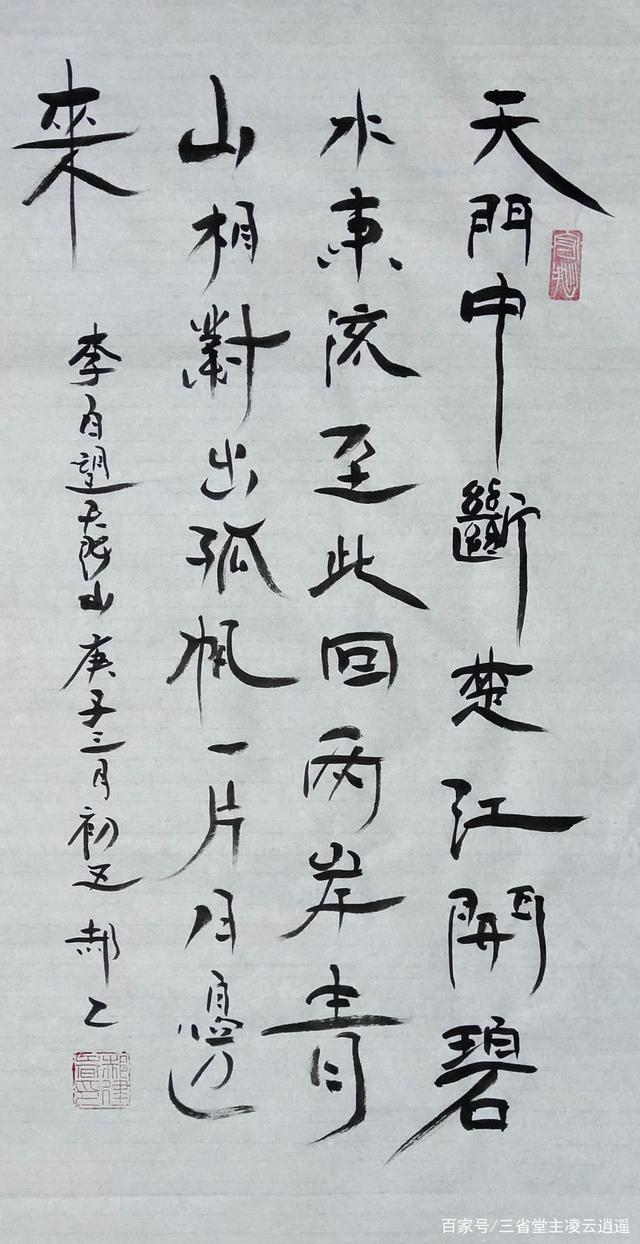 天門中斷楚江開碧
水東流至此回兩岸青
山相對出孤帆一片月邊
來
李白望天門山庚子三月初五郝乙
百家号/三省堂主凌云逍遥